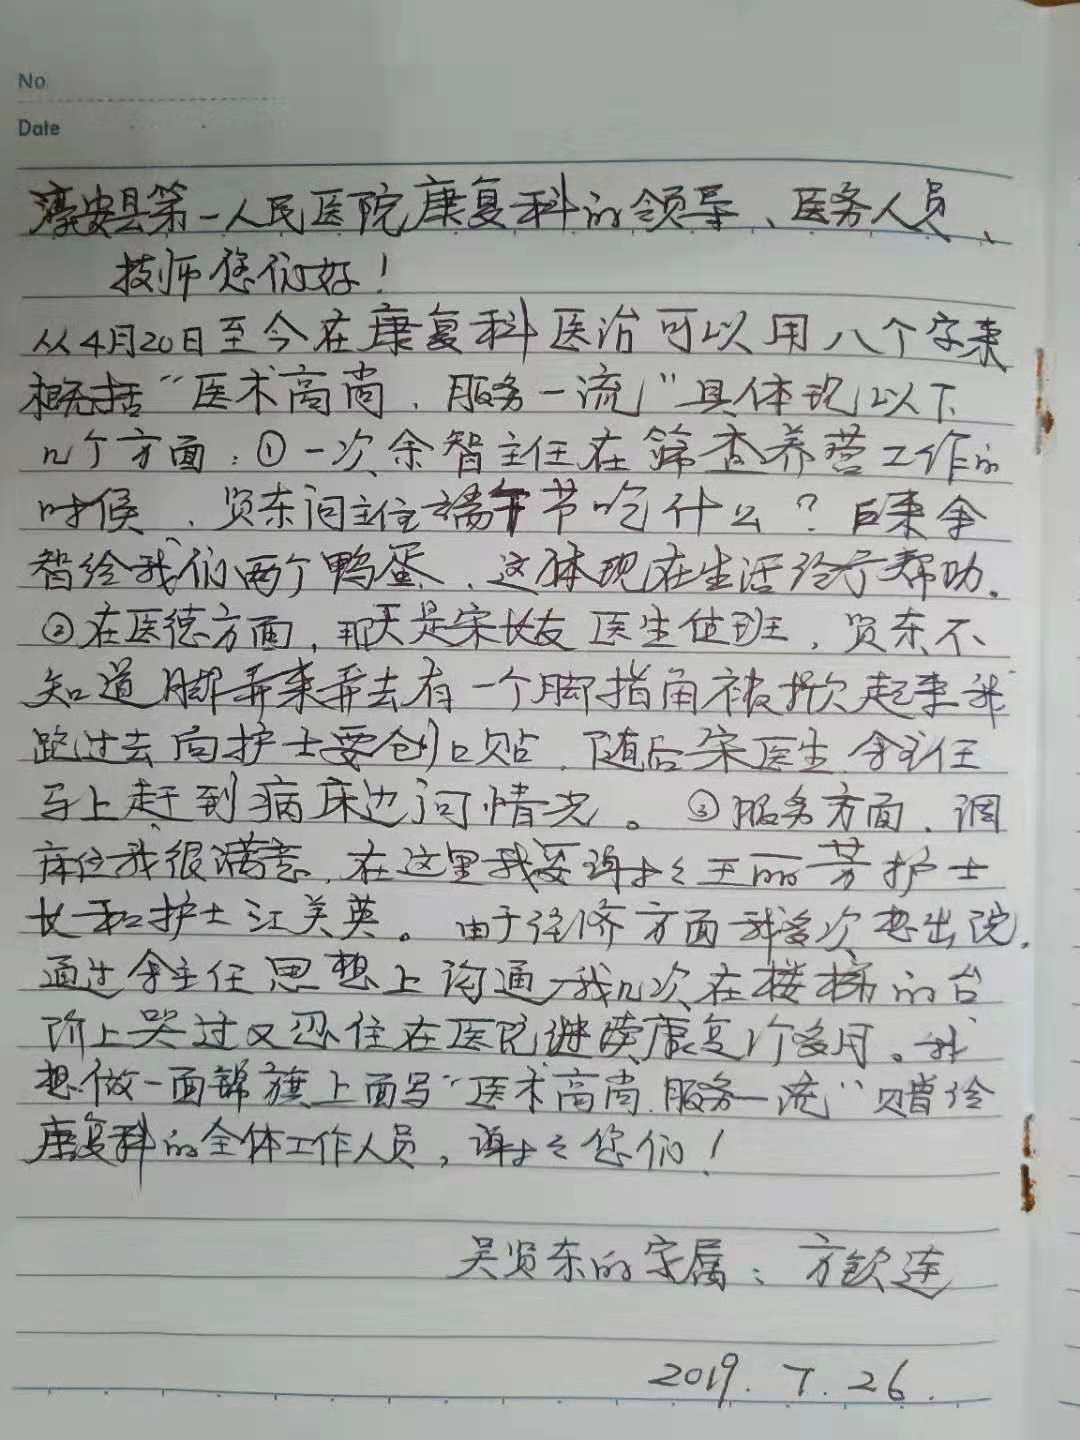 No.
Date
淳安县第一人民医院康复科的领导、医务人员、
技师您们好！
从4月20日至今在康复科医治可以用八个字来
概括“医术高尚、服务一流”具体现以下
几个方面：①一次余智主任在筛查养营工作的
时候、贤东问主任端午节吃什么？后来余
智给我们两个鸭蛋、这体现在生活诊疗帮助。
②在医德方面，那天是宋长友医生值班，贤东不
知道脚弄来弄去有一个脚指角被掀起来我
跑过去向护士要创口贴，随后宋医生余主任
马上赶到病床边问情况。③服务方面、调
床位我很满意，在这里我要谢谢王丽芳护士
长和护士江美英。由于经济方面我多次想出院，
通过余主任思想上沟通我几次在楼梯的台
阶上哭过又忍住在医院继续康复1个多月。我
想做一面锦旗上面写“医术高尚、服务一流”赠给
康复科的全体工作人员，谢谢您们！
吴贤东的家属：方钦莲
2019.7.26.